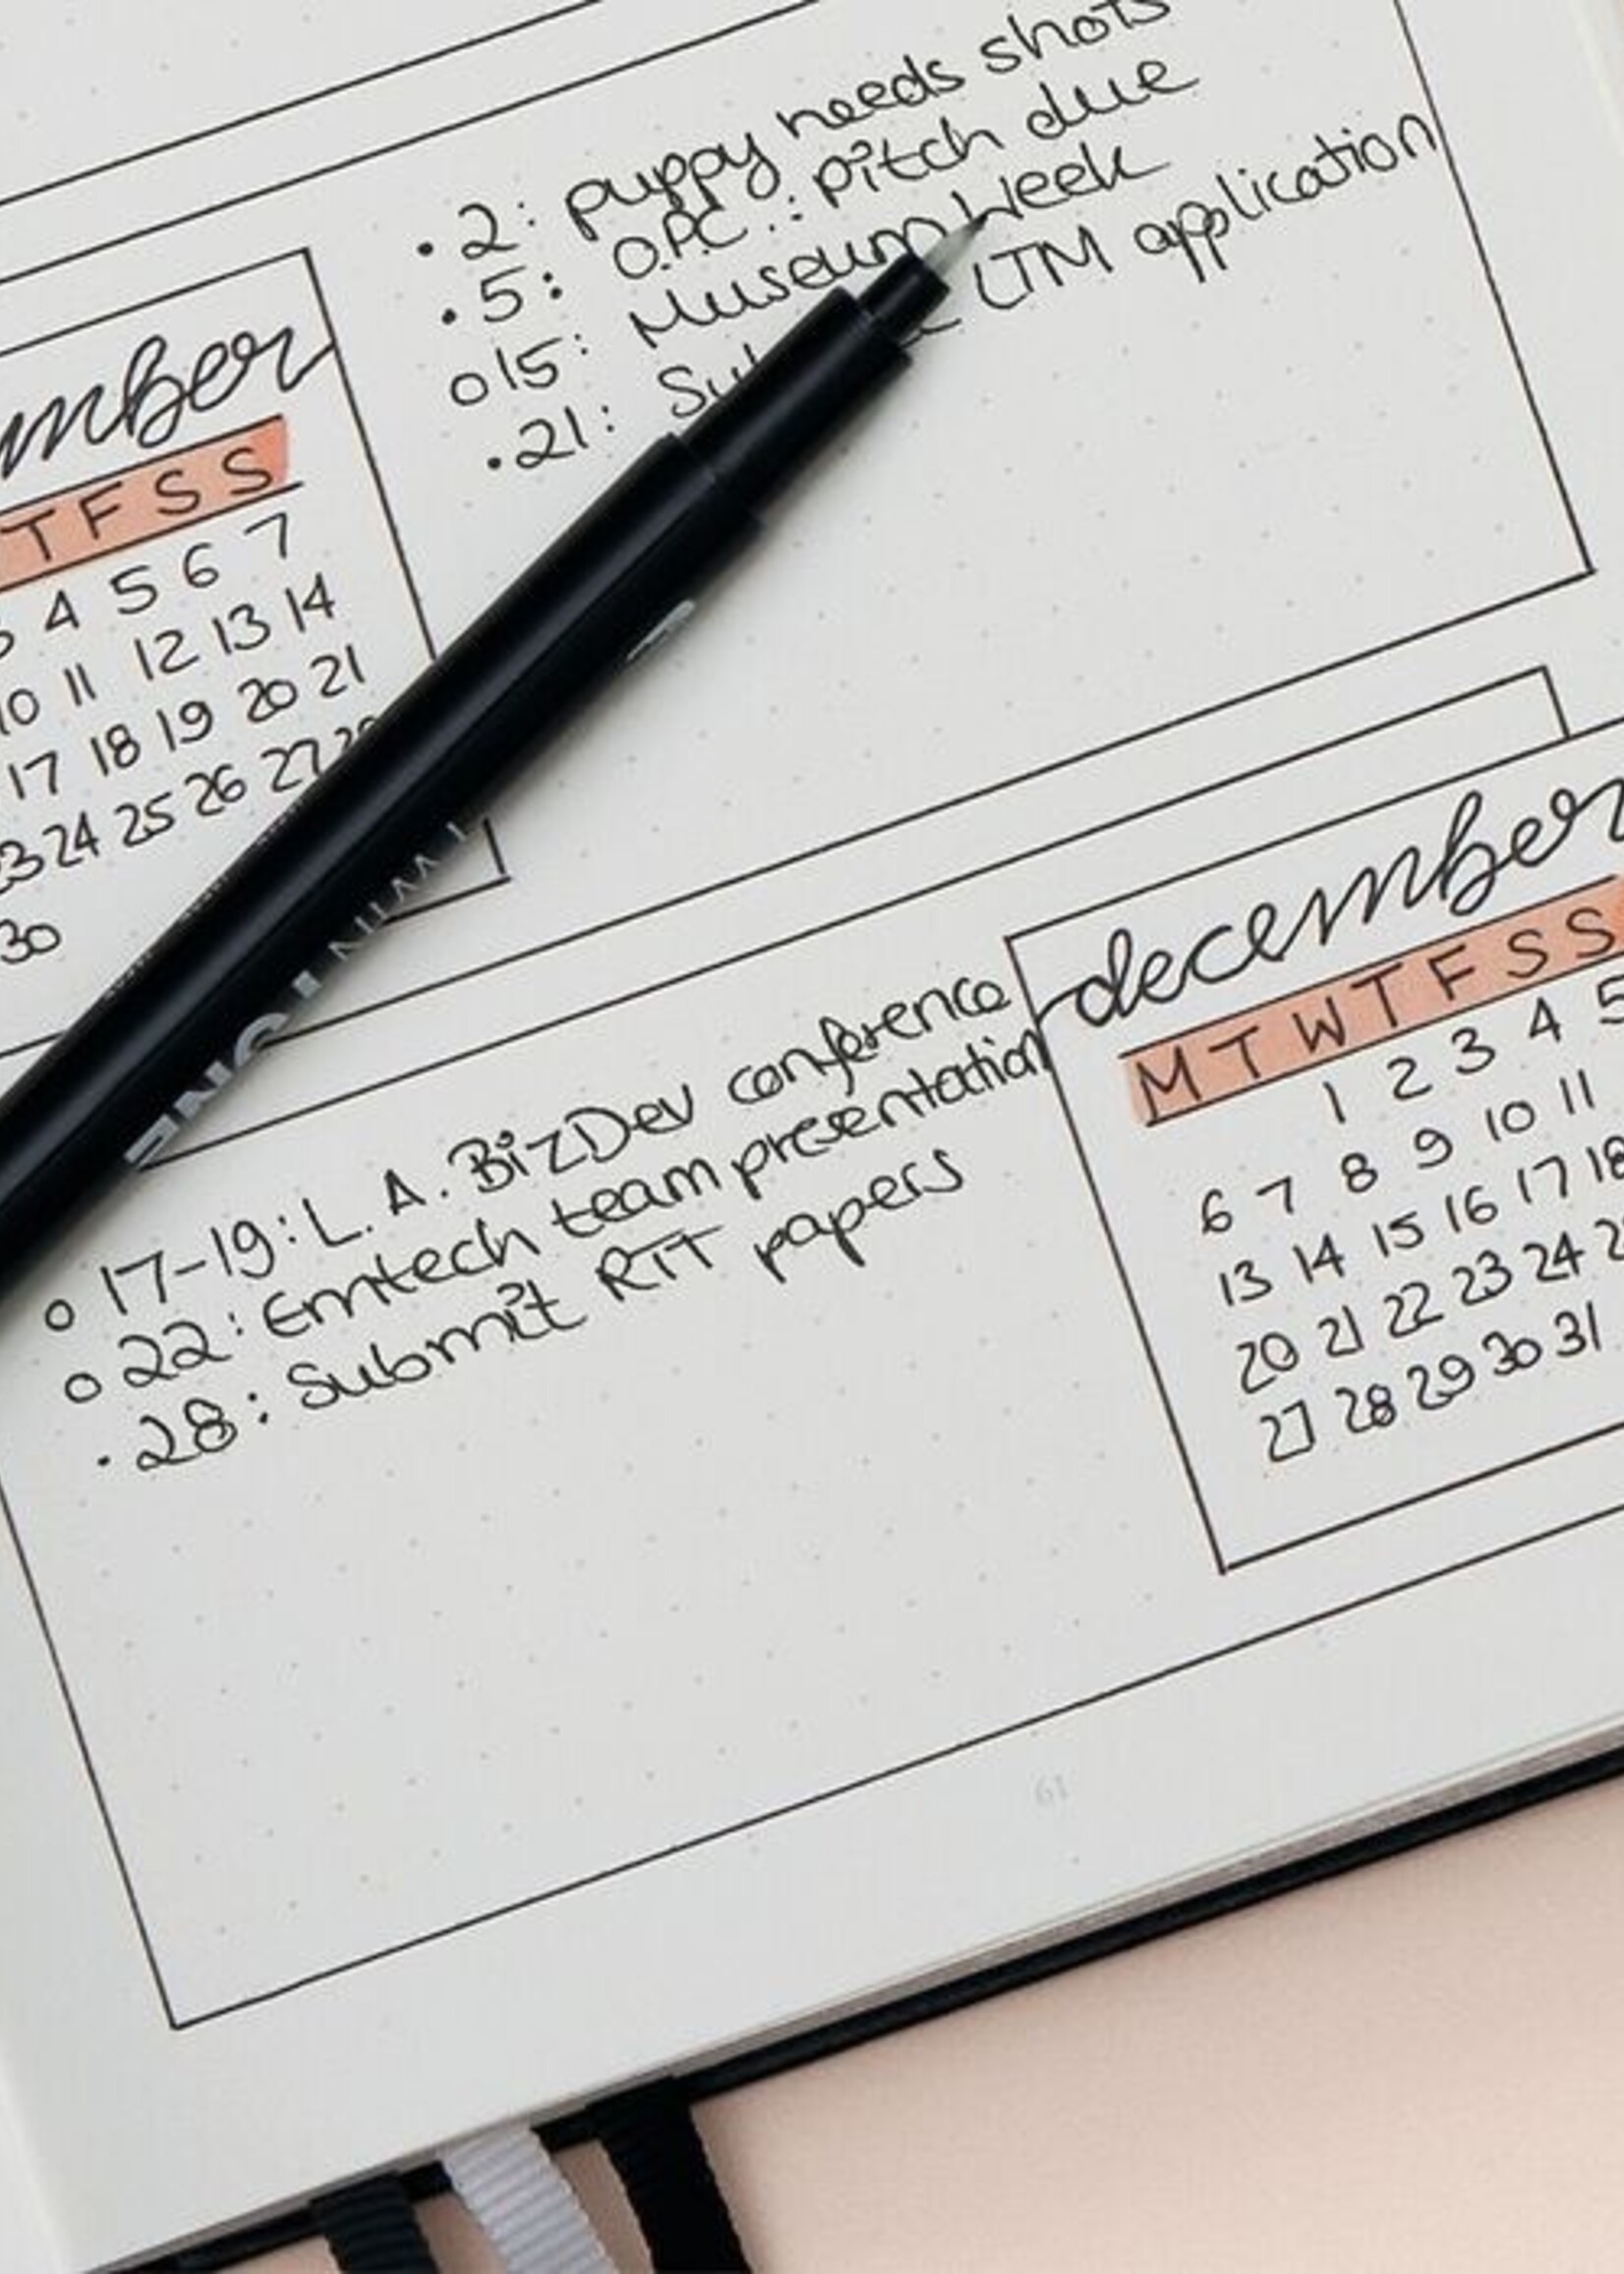 • 2: puppy needs shots
• 5: O.P.C.: pitch due
o 15: Museum Week
• 21: LTM application
mber
T F S S
4 5 6 7
10 11 12 13 14
17 18 19 20 21
23 24 25 26 27 28
30
december
M T W T F S S
1 2 3 4 5
6 7 8 9 10 11
13 14 15 16 17 18
20 21 22 23 24
27 28 29 30 31
o 17-19: L.A. BizDev conference
o 22: Emtech team presentation
• 28: Submit RTT papers
61